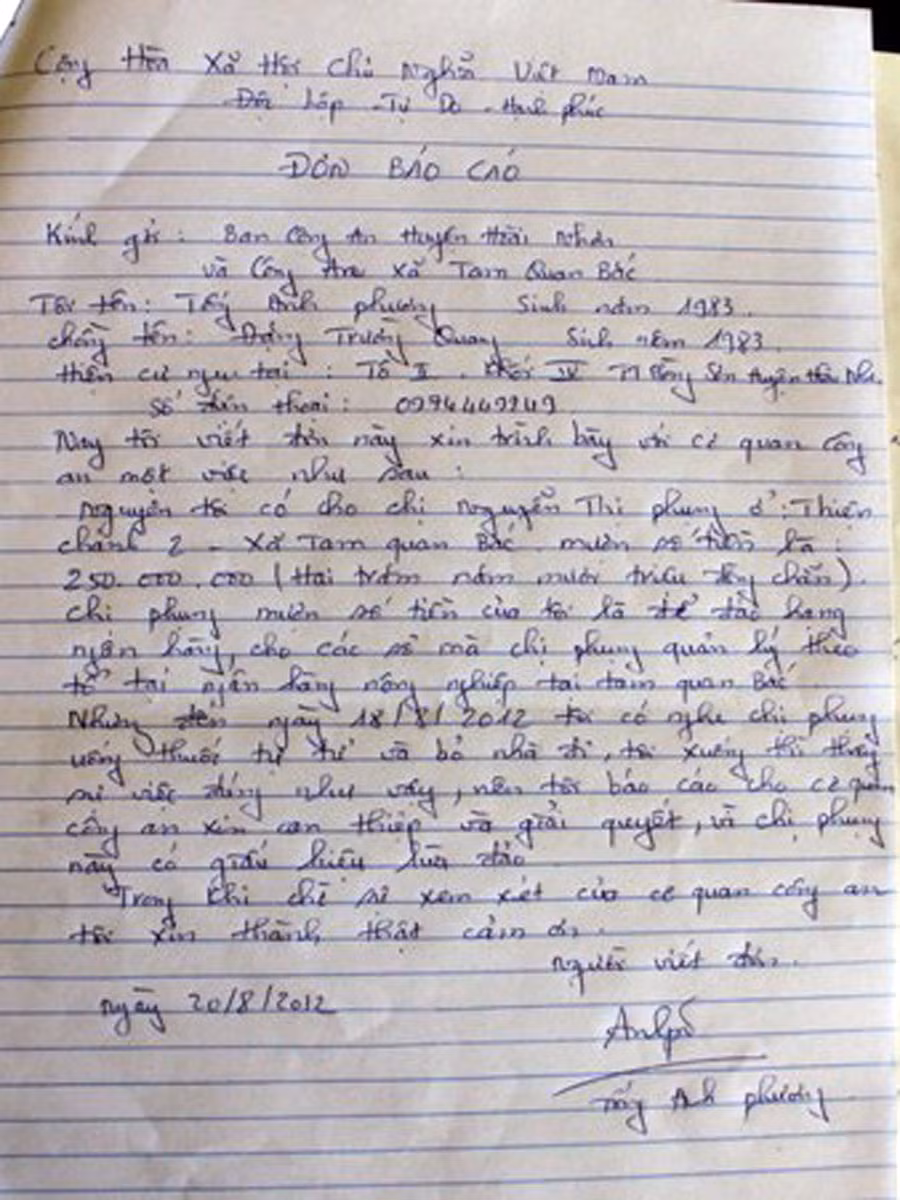 Cộng Hòa Xã Hội Chủ Nghĩa Việt Nam
Độc lập - Tự Do - Hạnh phúc
ĐƠN BÁO CÁO
Kính gửi : Ban Công An Huyện Hoài Nhơn
và Công An Xã Tam Quan Bắc
Tôi tên : Tống Anh phương Sinh năm 1983.
chồng tên : Đặng Trường Quang Sinh năm 1983.
hiện cư ngụ tại : Tổ II . Khối IV TT Bồng Sơn Huyện Hoài Nhơn
Số điện thoại : 0994449949
Nay tôi viết đơn này xin trình bày với cơ quan công
an một việc như sau :
Nguyên tôi có cho chị Nguyễn Thị phụng ở : Thiện
chánh 2 - Xã Tam quan Bắc mượn số tiền là :
250.000.000 (Hai trăm năm mươi triệu đồng chẵn).
Chị phụng mượn số tiền của tôi là để đáo hạng
ngân hàng, cho các sổ mà chị phụng quản lý theo
tổ tại ngân hàng nông nghiệp tại tam quan Bắc
Nhưng đến ngày 18/8/2012 tôi có nghe chị phụng
uống thuốc tự tử và bỏ nhà đi, tôi xuống thì thấy
sự việc đúng như vậy, nên tôi báo cáo cho cơ quan
công an xin can thiệp và giải quyết, vì chị phụng
này có giấu hiệu lừa đảo
Trong khi chờ sự xem xét của cơ quan công an
tôi xin thành thật cảm ơn.
Người viết đơn.
Ngày 20/8/2012
Tống Anh phương